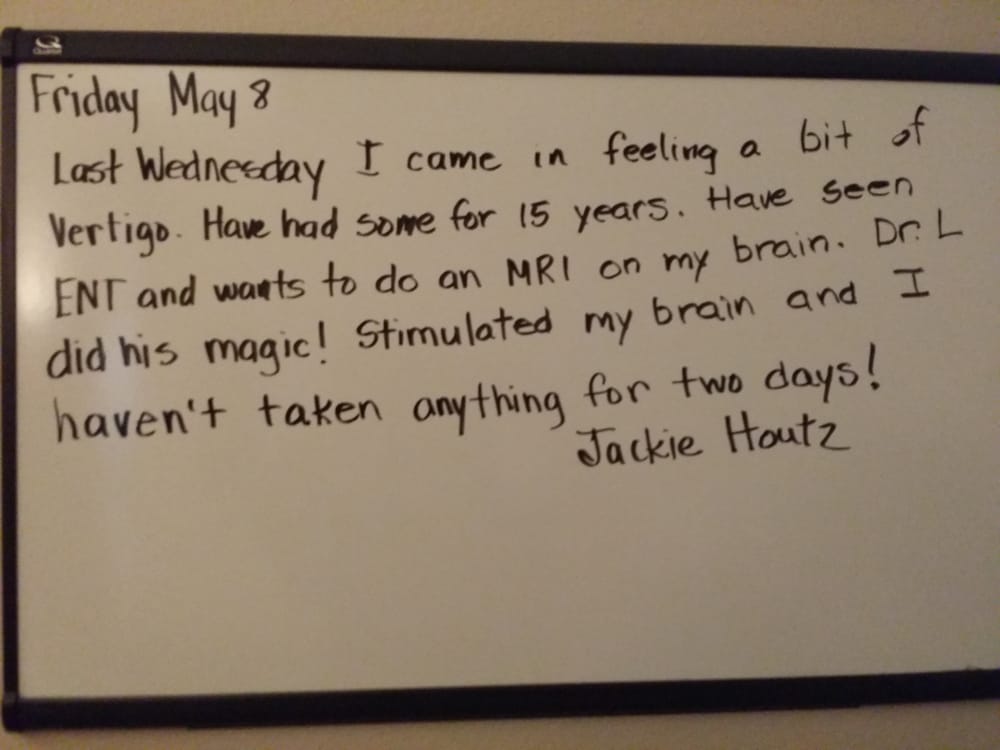 Friday May 8
Last Wednesday I came in feeling a bit of
Vertigo. Have had some for 15 years. Have seen
ENT and wants to do an MRI on my brain. Dr. L
did his magic! Stimulated my brain and I
haven't taken anything for two days!
Jackie Houtz